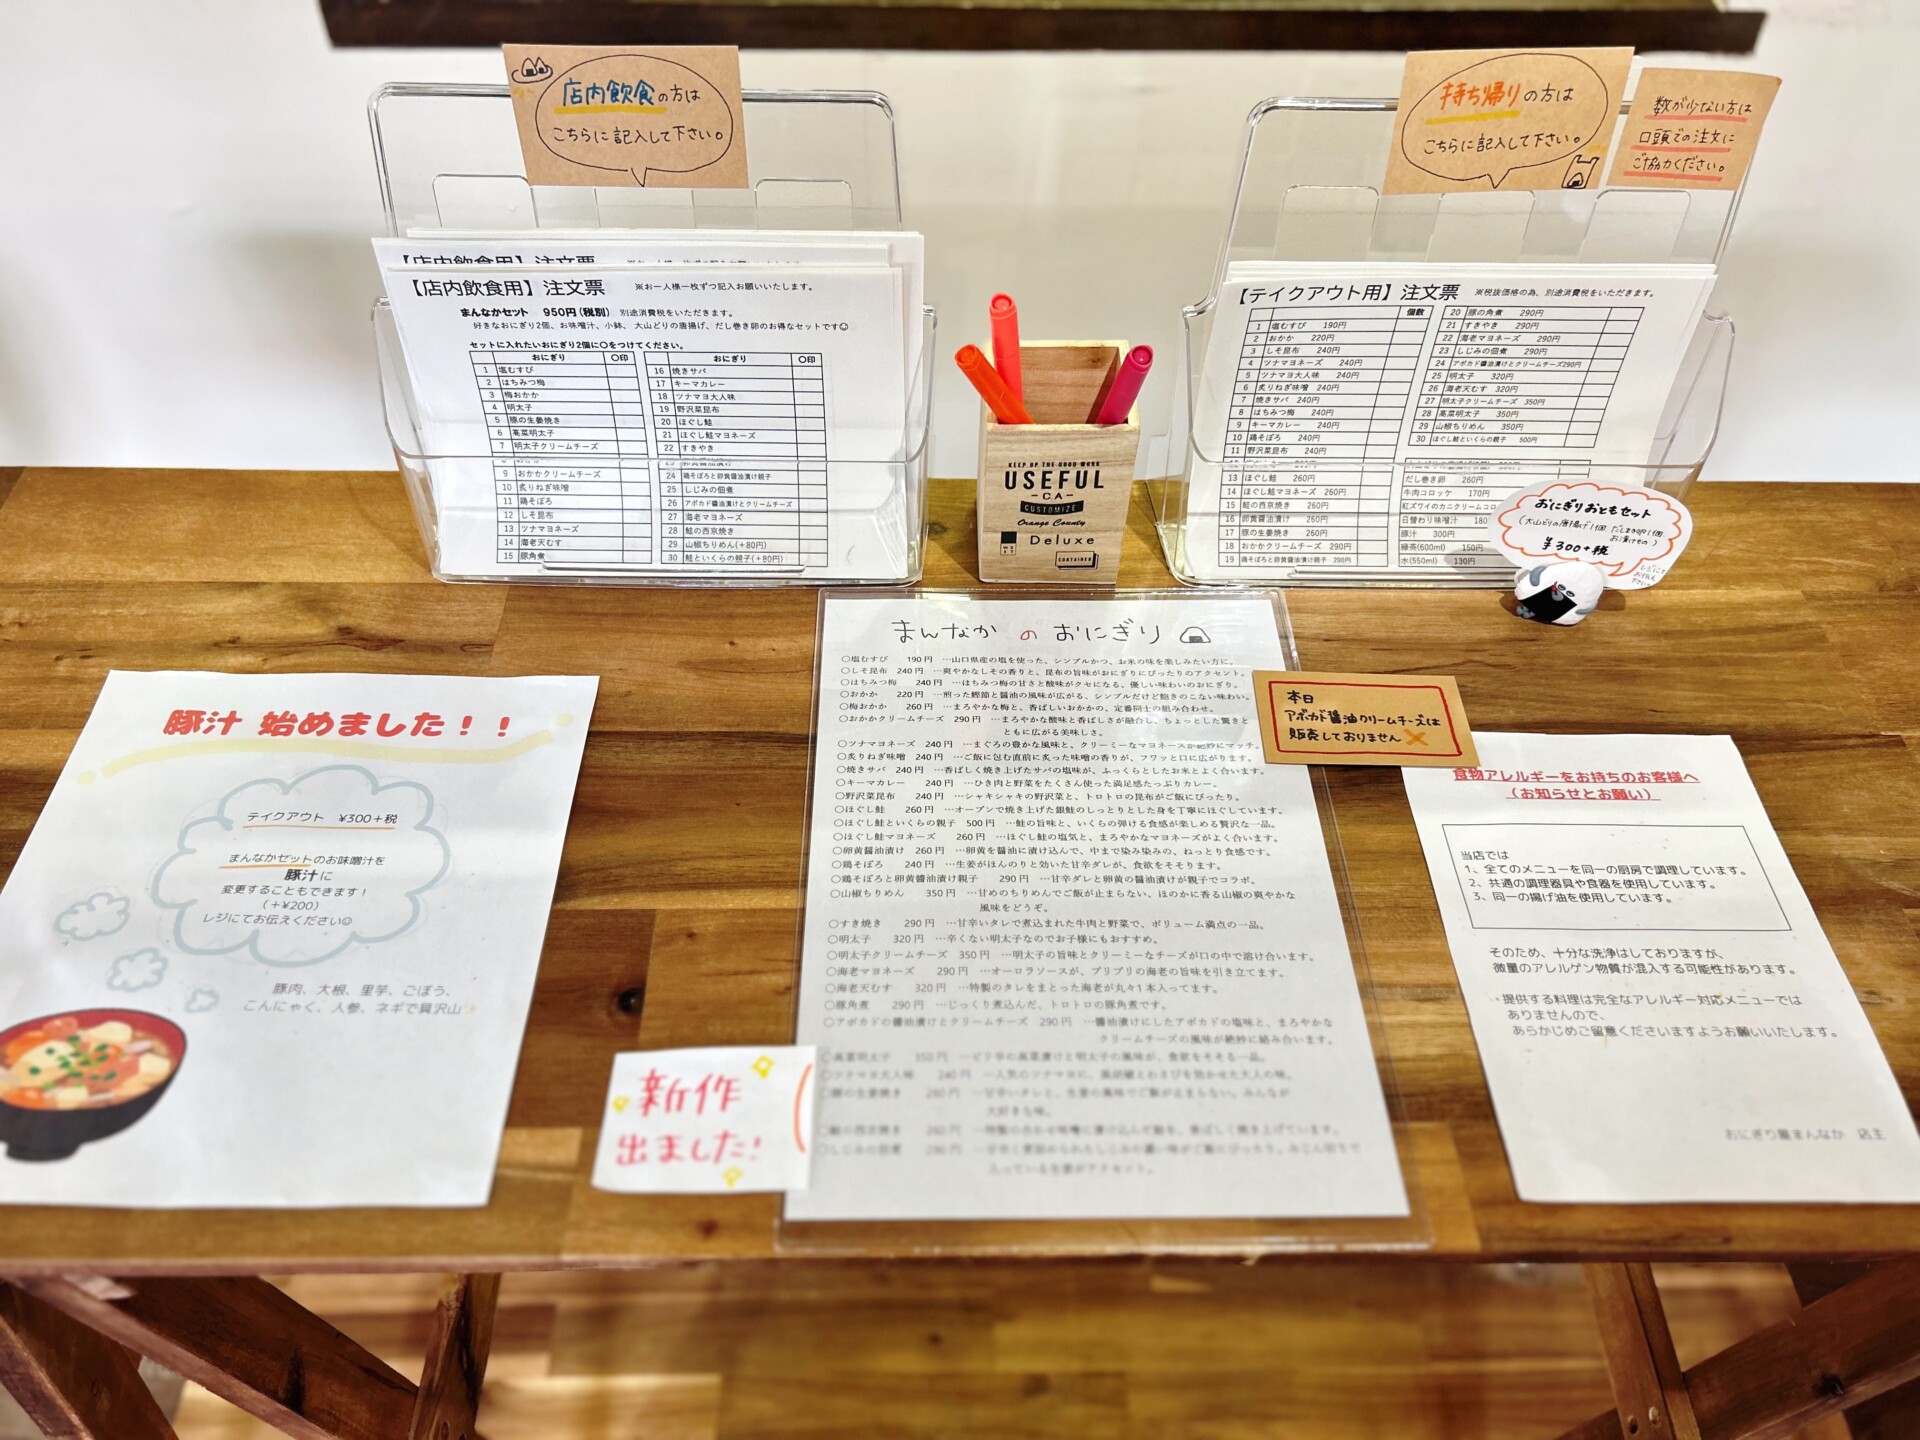 店内飲食の方は
こちらに記入して下さい。
持ち帰りの方は
こちらに記入して下さい。
数が少ない方は
口頭での注文に
ご協力ください。
【店内飲食用】注文票 ※お一人様一枚ずつ記入お願いいたします。
まんなかセット 950円(税別) 別途消費税をいただきます。
好きなおにぎり2個、お味噌汁、小鉢、大山どりの唐揚げ、だし巻き卵のお得なセットです☺
セットに入れたいおにぎり2個に〇をつけてください。
おにぎり 〇印
1 塩むすび
2 はちみつ梅
3 梅おかか
4 明太子
5 豚の生姜焼き
6 高菜明太子
7 明太子クリームチーズ
9 おかかクリームチーズ
10 炙りねぎ味噌
11 鶏そぼろ
12 しそ昆布
13 ツナマヨネーズ
14 海老天むす
15 豚角煮
おにぎり 〇印
16 焼きサバ
17 キーマカレー
18 ツナマヨ大人味
19 野沢菜昆布
20 ほぐし鮭
21 ほぐし鮭マヨネーズ
22 すきやき
23 卵黄醤油漬け
24 鶏そぼろと卵黄醤油漬け親子
25 しじみの佃煮
26 アボカド醤油漬けとクリームチーズ
27 海老マヨネーズ
28 鮭の西京焼き
29 山椒ちりめん(+80円)
30 鮭といくらの親子(+80円)
KEEP UP THE GOOD WORK
USEFUL
-CA-
CUSTOMIZE
Orange County
Deluxe
CONTAINER
【テイクアウト用】注文票 ※税抜価格の為、別途消費税をいただきます。
個数
1 塩むすび 190円
2 おかか 220円
3 しそ昆布 240円
4 ツナマヨネーズ 240円
5 ツナマヨ大人味 240円
6 炙りねぎ味噌 240円
7 焼きサバ 240円
8 はちみつ梅 240円
9 キーマカレー 240円
10 鶏そぼろ 240円
11 野沢菜昆布 240円
13 ほぐし鮭 260円
14 ほぐし鮭マヨネーズ 260円
15 鮭の西京焼き 260円
16 卵黄醤油漬け 260円
17 豚の生姜焼き 260円
18 おかかクリームチーズ 290円
19 鶏そぼろと卵黄醤油漬け親子 290円
20 豚の角煮 290円
21 すきやき 290円
22 海老マヨネーズ 290円
23 しじみの佃煮 290円
24 アボカド醤油漬けとクリームチーズ290円
25 明太子 320円
26 海老天むす 320円
27 明太子クリームチーズ 350円
28 高菜明太子 350円
29 山椒ちりめん 350円
30 ほぐし鮭といくらの親子 500円
だし巻き卵 260円
牛肉コロッケ 170円
紅ズワイのカニクリームコロ
日替わり味噌汁 180
豚汁 300円
緑茶(600ml) 150円
水(550ml) 130円
おにぎりおともセット
(大山どりの唐揚げ1個、だしまき卵1個、
お漬けもの)
¥300+税
まんなかのおにぎり
〇塩むすび 190円 …山口県産の塩を使った、シンプルかつ、お米の味を楽しみたい方に。
〇しそ昆布 240円 …爽やかなしその香りと、昆布の旨味がおにぎりにぴったりのアクセント。
〇はちみつ梅 240円 …はちみつ梅の甘さと酸味がクセになる、優しい味わいのおにぎり。
〇おかか 220円 …煎った鰹節と醤油の風味が広がる、シンプルだけど飽きのこない味わい。
〇梅おかか 260円 …まろやかな梅と、香ばしいおかかの、定番同士の組み合わせ。
〇おかかクリームチーズ 290円 …まろやかな酸味と香ばしさが融合し、ちょっとした驚きと
ともに広がる美味しさ。
〇ツナマヨネーズ 240円 …まぐろの豊かな風味と、クリーミーなマヨネーズが絶妙にマッチ。
〇炙りねぎ味噌 240円 …ご飯に包む直前に炙った味噌の香りが、フワッと口に広がります。
〇焼きサバ 240円 …香ばしく焼き上げたサバの塩味が、ふっくらとしたお米とよく合います。
〇キーマカレー 240円 …ひき肉と野菜をたくさん使った満足感たっぷりカレー。
〇野沢菜昆布 240円 …シャキシャキの野沢菜と、トロトロの昆布がご飯にぴったり。
〇ほぐし鮭 260円 …オーブンで焼き上げた銀鮭のしっとりとした身を丁寧にほぐしています。
〇ほぐし鮭といくらの親子 500円 …鮭の旨味と、いくらの弾ける食感が楽しめる贅沢な一品。
〇ほぐし鮭マヨネーズ 260円 …ほぐし鮭の塩気と、まろやかなマヨネーズがよく合います。
〇卵黄醤油漬け 260円 …卵黄を醤油に漬け込んで、中まで染み染みの、ねっとり食感です。
〇鶏そぼろ 240円 …生姜がほんのりと効いた甘辛ダレが、食欲をそそります。
〇鶏そぼろと卵黄醤油漬け親子 290円 …甘辛ダレと卵黄の醤油漬けが親子でコラボ。
〇山椒ちりめん 350円 …甘めのちりめんでご飯が止まらない、ほのかに香る山椒の爽やかな
風味をどうぞ。
〇すき焼き 290円 …甘辛いタレで煮込まれた牛肉と野菜で、ボリューム満点の一品。
〇明太子 320円 …辛くない明太子なのでお子様にもおすすめ。
〇明太子クリームチーズ 350円 …明太子の旨味とクリーミーなチーズが口の中で溶け合います。
〇海老マヨネーズ 290円 …オーロラソースが、プリプリの海老の旨味を引き立てます。
〇海老天むす 320円 …特製のタレをまとった海老が丸々1本入ってます。
〇豚角煮 290円 …じっくり煮込んだ、トロトロの豚角煮です。
〇アボカドの醤油漬けとクリームチーズ 290円 …醤油漬けにしたアボカドの塩味と、まろやかな
クリームチーズの風味が絶妙に絡み合います。
〇高菜明太子 350円 …ピリ辛の高菜漬けと明太子の風味が、食欲をそそる一品。
〇ツナマヨ大人味 240円 …人気のツナマヨに、黒胡椒とわさびを効かせた大人の味。
〇豚の生姜焼き 260円 …甘辛いタレと、生姜の風味でご飯が止まらない。みんなが
大好きな味。
本日
アボカド醤油クリームチーズは
販売しておりません✕
新作
出ました!
豚汁 始めました！！
テイクアウト ¥300+税
まんなかセットのお味噌汁を
豚汁に
変更することもできます！
(+¥200)
レジにてお伝えください☺
豚肉、大根、里芋、ごぼう、
こんにゃく、人参、ネギで具沢山✨
食物アレルギーをお持ちのお客様へ
(お知らせとお願い)
当店では
1、全てのメニューを同一の厨房で調理しています。
2、共通の調理器具や食器を使用しています。
3、同一の揚げ油を使用しています。
そのため、十分な洗浄はしておりますが、
微量のアレルゲン物質が混入する可能性があります。
提供する料理は完全なアレルギー対応メニューでは
ありませんので、
あらかじめご留意くださいますようお願いいたします。
おにぎり屋まんなか 店主